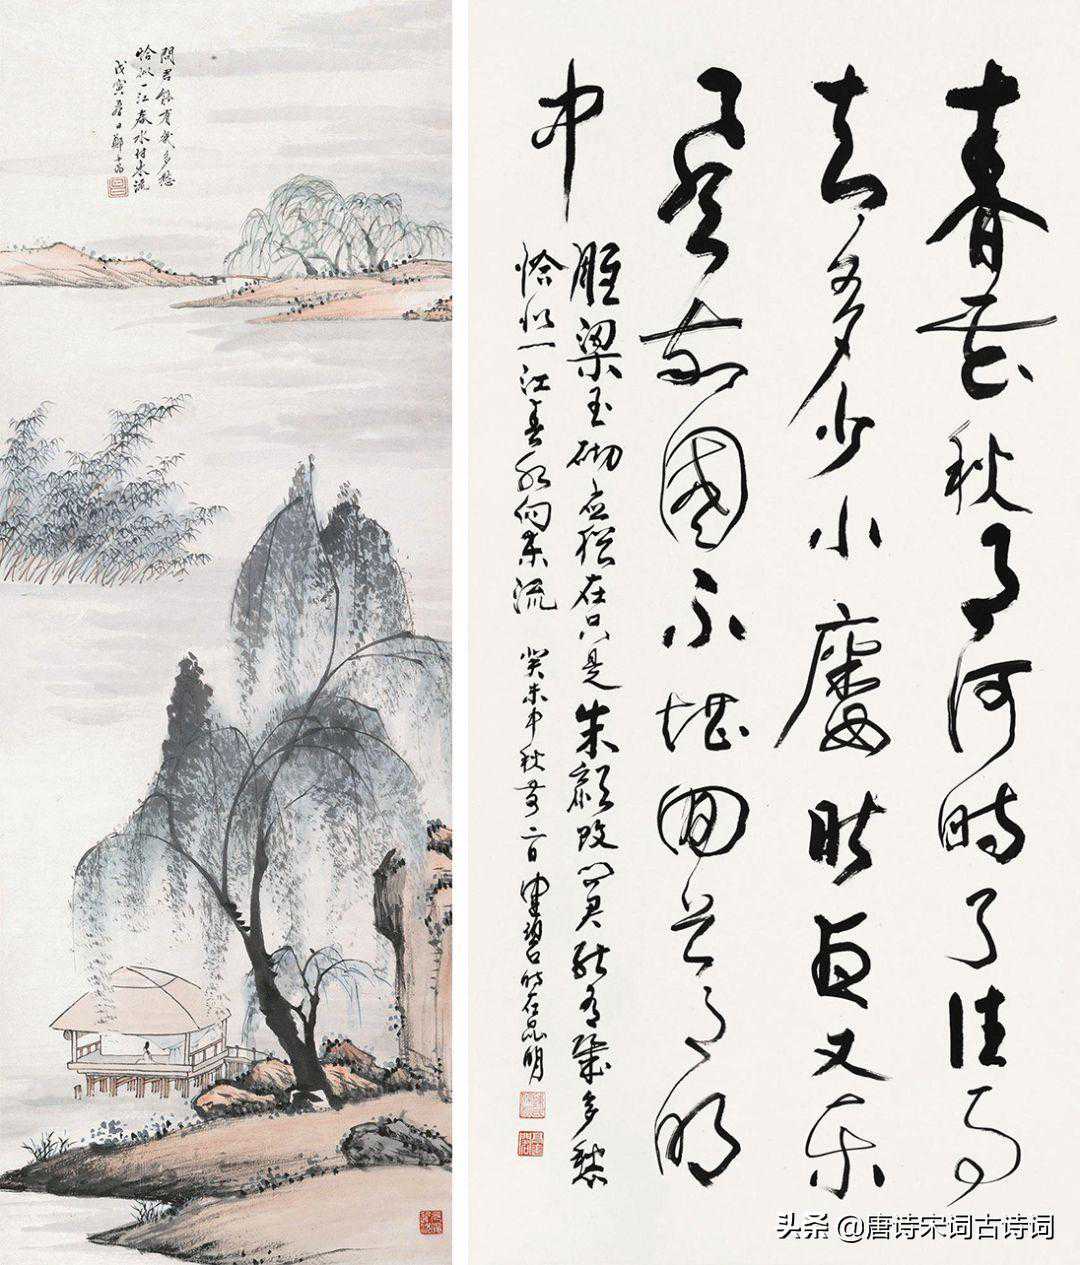 問君能有幾多愁
恰似一江春水付東流
戊寅春日鄭午昌
春花秋月何時了往事
知多少小樓昨夜又東
風故國不堪回首月明
中
雕梁玉砌應猶在只是朱顏改問君能有幾多愁
恰似一江春水向東流 癸未中秋二日時在昆明
头条 @唐诗宋词古诗词